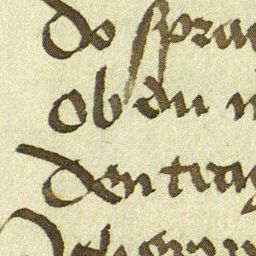 do sprac
ob du n
den trag